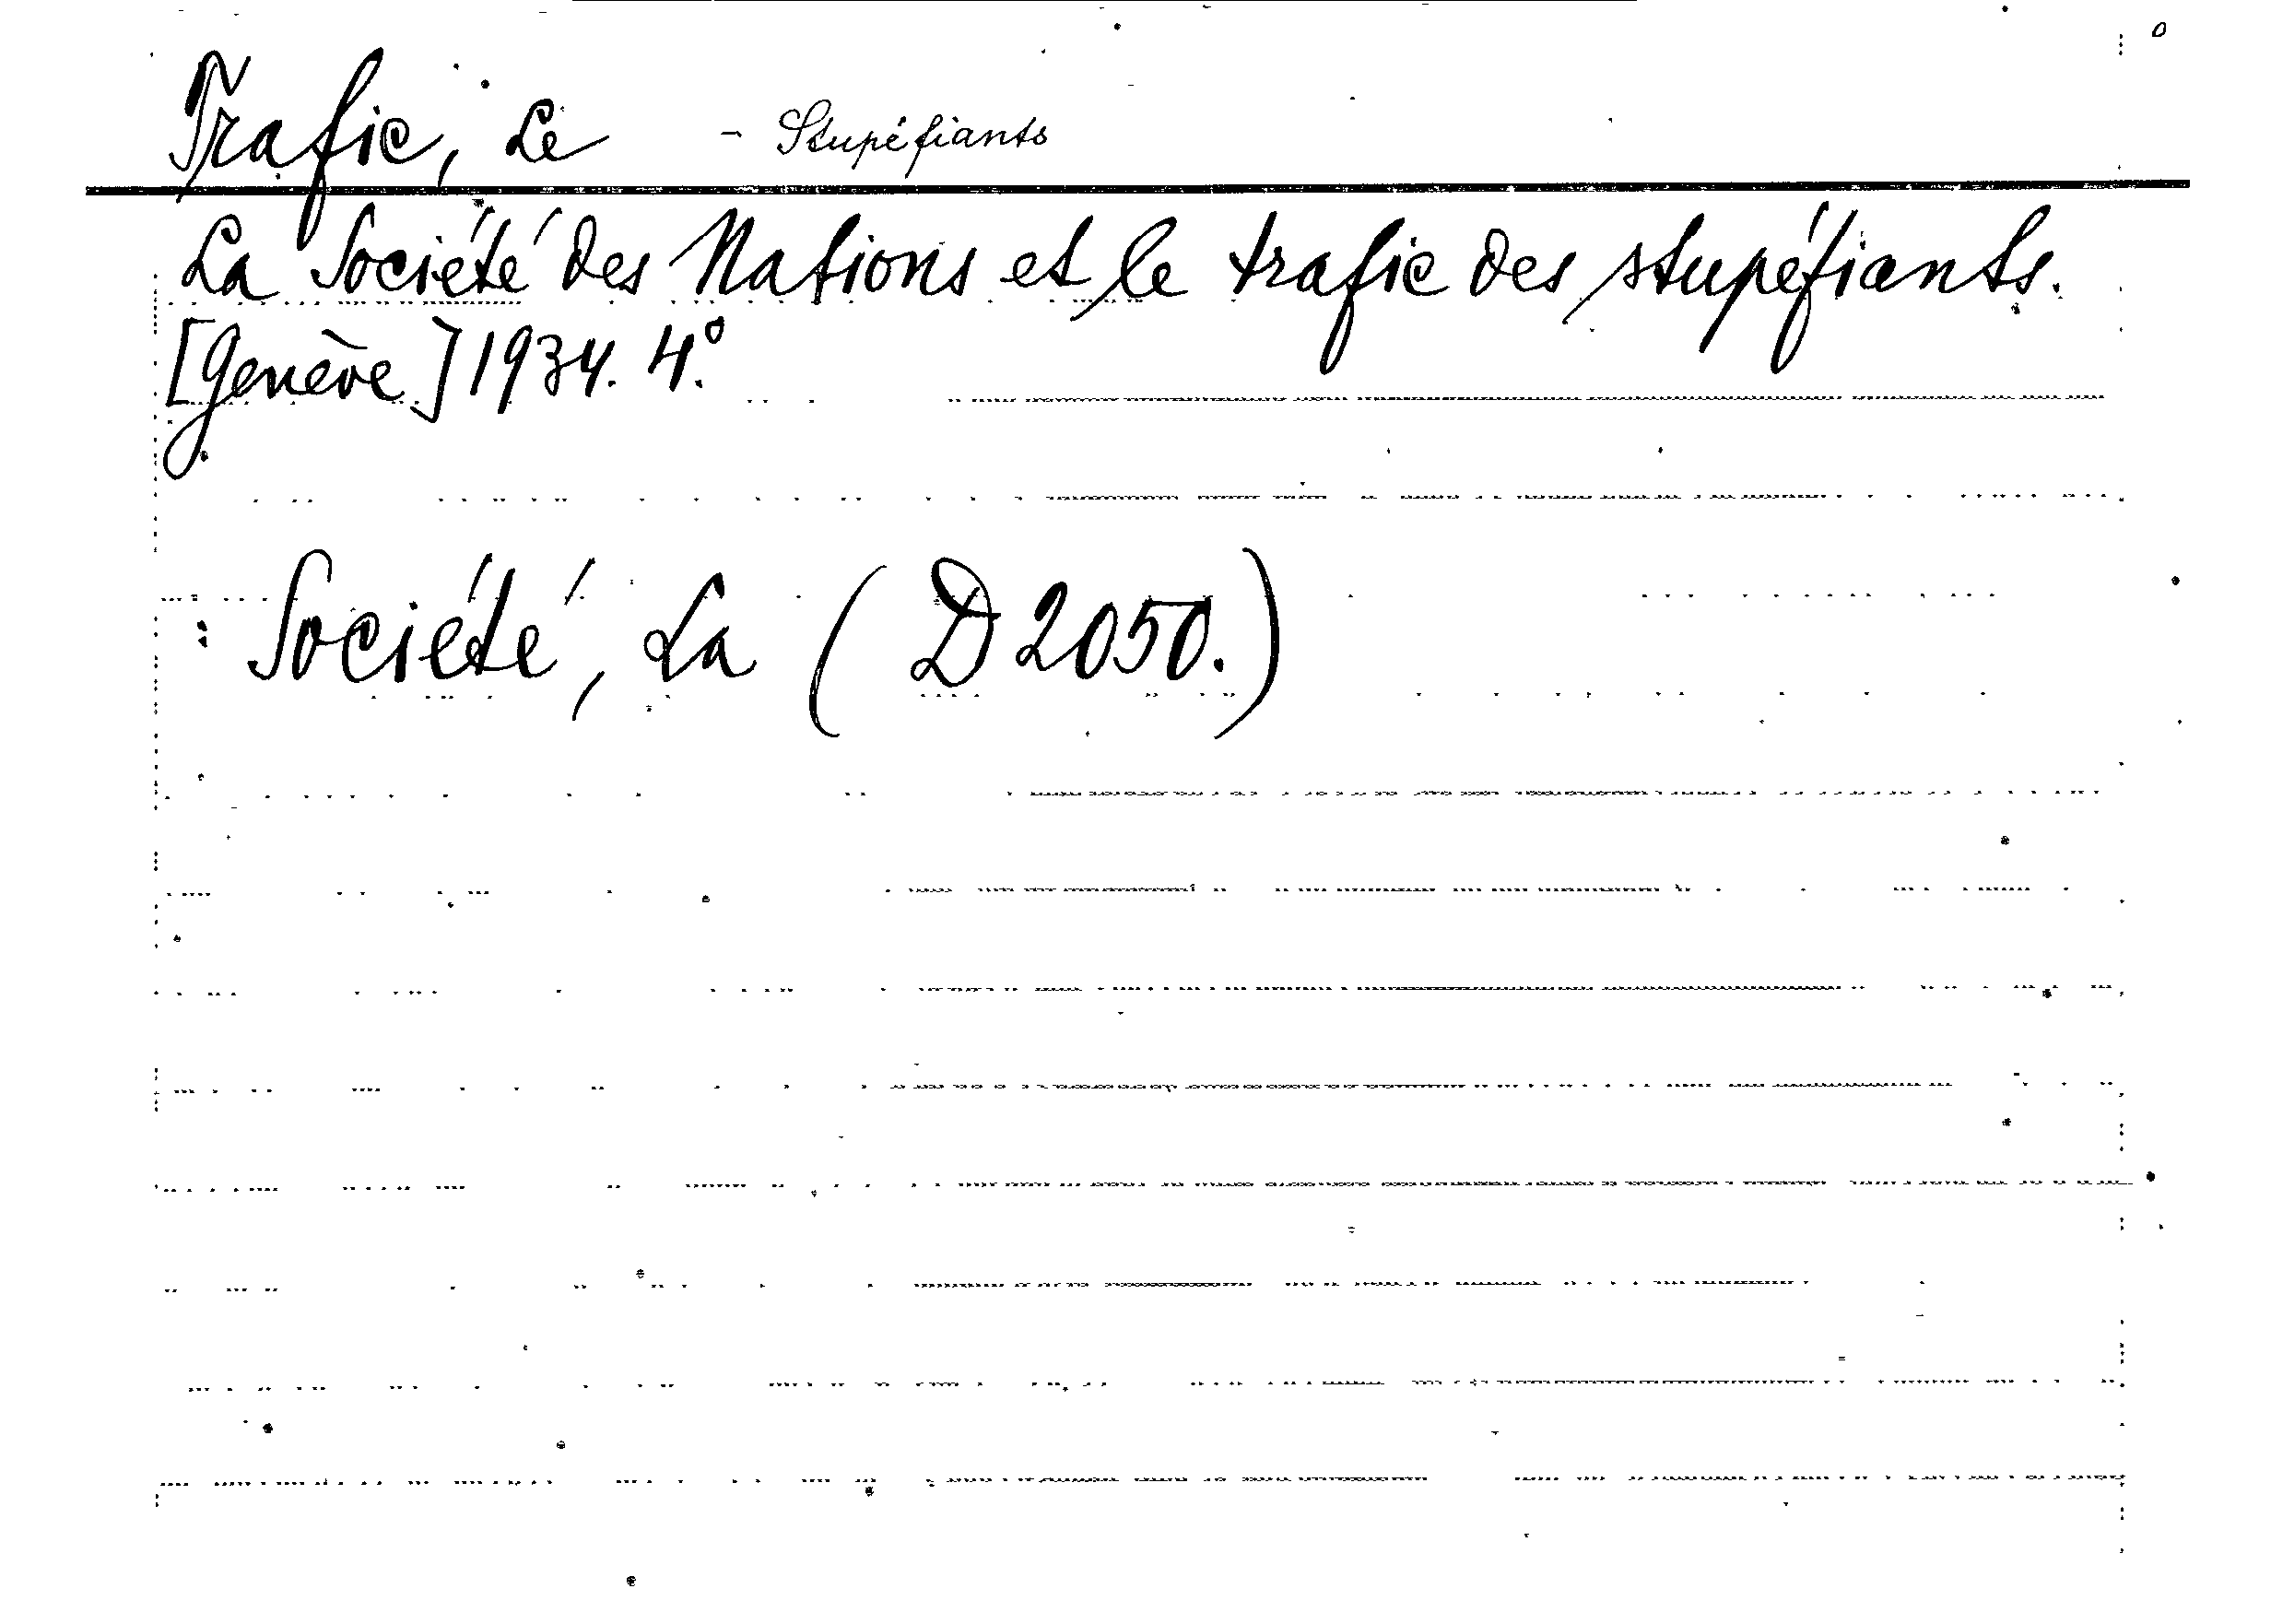 Trafic, Le - Stupéfiants
La Société des Nations et le trafic des stupéfiants.
[Genève] 1934. 4.°
: Société, La (D 2050.)